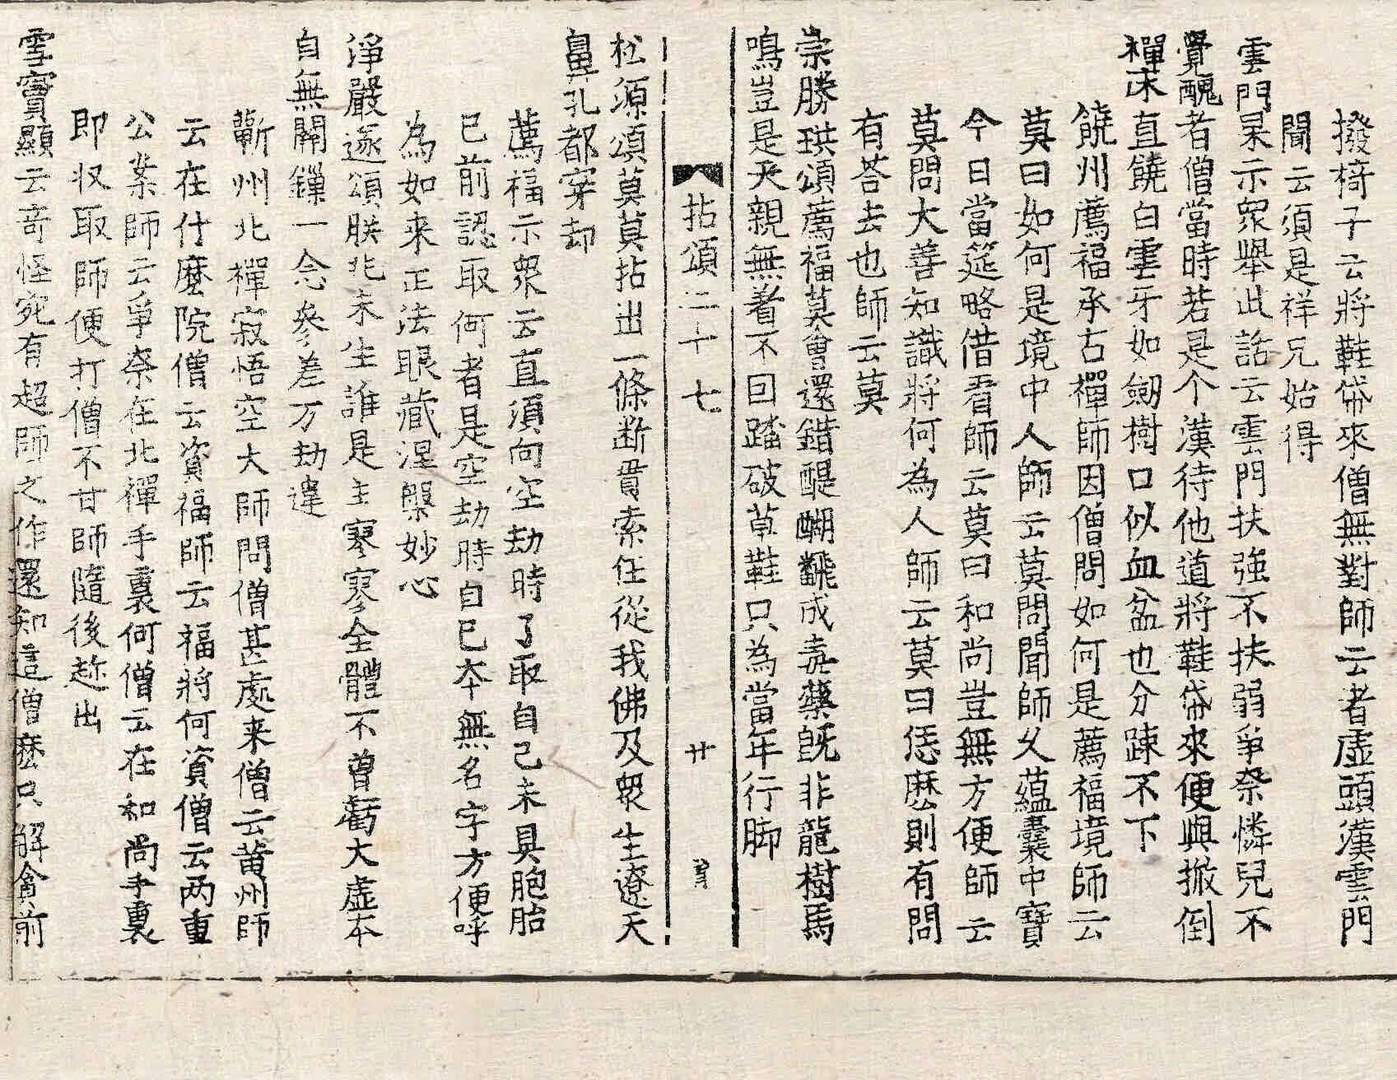 撥椅子云將鞋帒來僧無對師云者虛頭漢雲門
聞云須是祥兄始得
雲門杲示眾舉此話云雲門扶強不扶弱爭柰憐兒不
覺醜者僧當時若是个漢待他道將鞋帒來便與掀倒
禪床直饒白雲牙如劒樹口似血盆也分踈不下
饒州薦福承古禪師因僧問如何是薦福境師云
莫曰如何是境中人師云莫問聞師乆蘊囊中寶
今日當筵略借看師云莫曰和尚豈無方便師云
莫問大善知識將何為人師云莫曰恁麽則有問
有荅去也師云莫
崇勝珙頌薦福莫會還錯醍醐飜成毒藥旣非龍樹馬
鳴豈是天親無著不曰踏破草鞋只為當年行脚
拈頌二十七
廿
松源頌莫莫拈出一條斷貫索任從我佛及眾生遼天
鼻孔都穿却
薦福示眾云直須向空劫時了取自己未具胞胎
已前認取何者是空劫時自己本無名字方便呼
為如来正法眼藏涅槃妙心
淨嚴遂頌朕兆未生誰是主寥寥全體不曾虧大虛本
自無關鏁一念參差万劫違
蘄州北禪寂悟空大師問僧甚處来僧云黃州師
云在什麽院僧云資福師云福將何資僧云两重
公案師云爭柰在北禪手裏何僧云在和尚手裏
即收取師便打僧不甘師隨後趂出
雪竇顯云竒怪宛有超師之作還知這僧麽只解貪前